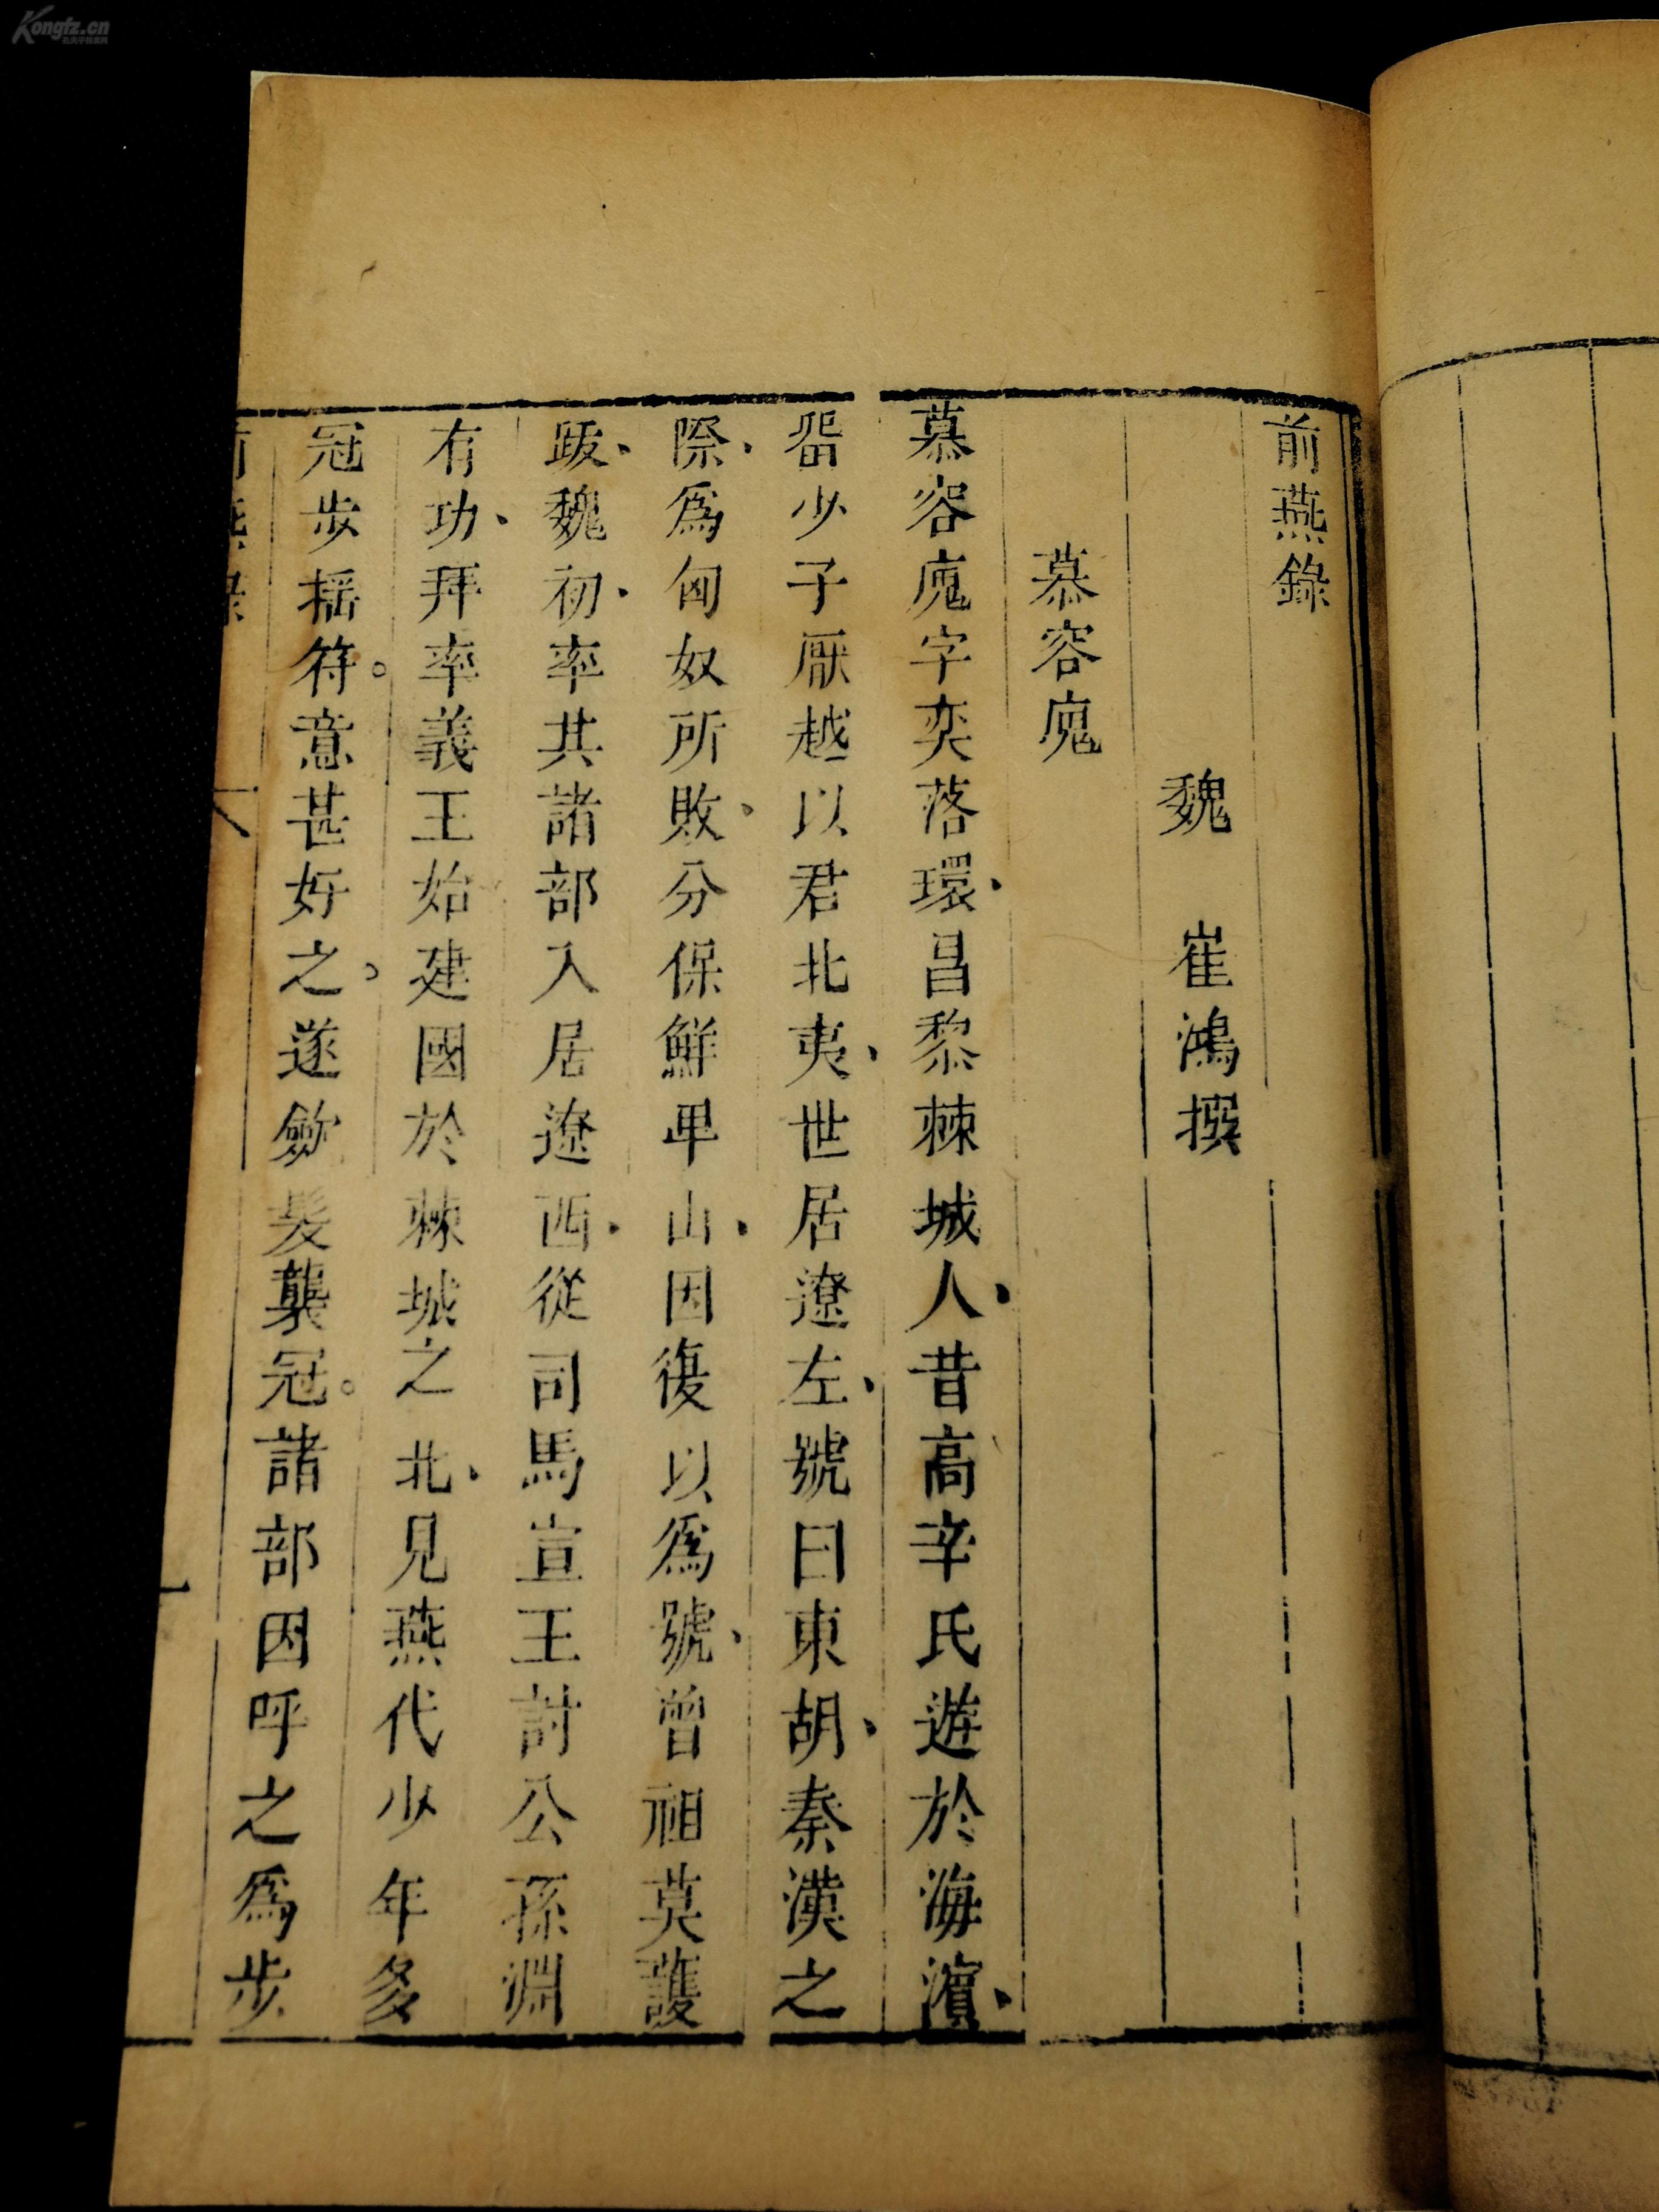 前燕錄
魏 崔鴻撰
慕容廆
慕容廆字奕落環、昌黎棘城人、昔高辛氏遊於海濵、
畱少子厭越以君北夷、世居遼左、號曰東胡、秦漢之
際、爲匈奴所敗、分保鮮卑山、因復以爲號、曾祖莫護
跋、魏初、率其諸部入居遼西、從司馬宣王討公孫淵
有功、拜率義王始建國於棘城之北、見燕代少年多
冠步揺符。意甚好之、遂斂髮襲冠。諸部因呼之爲步
前燕錄
一
Kongfz.cn